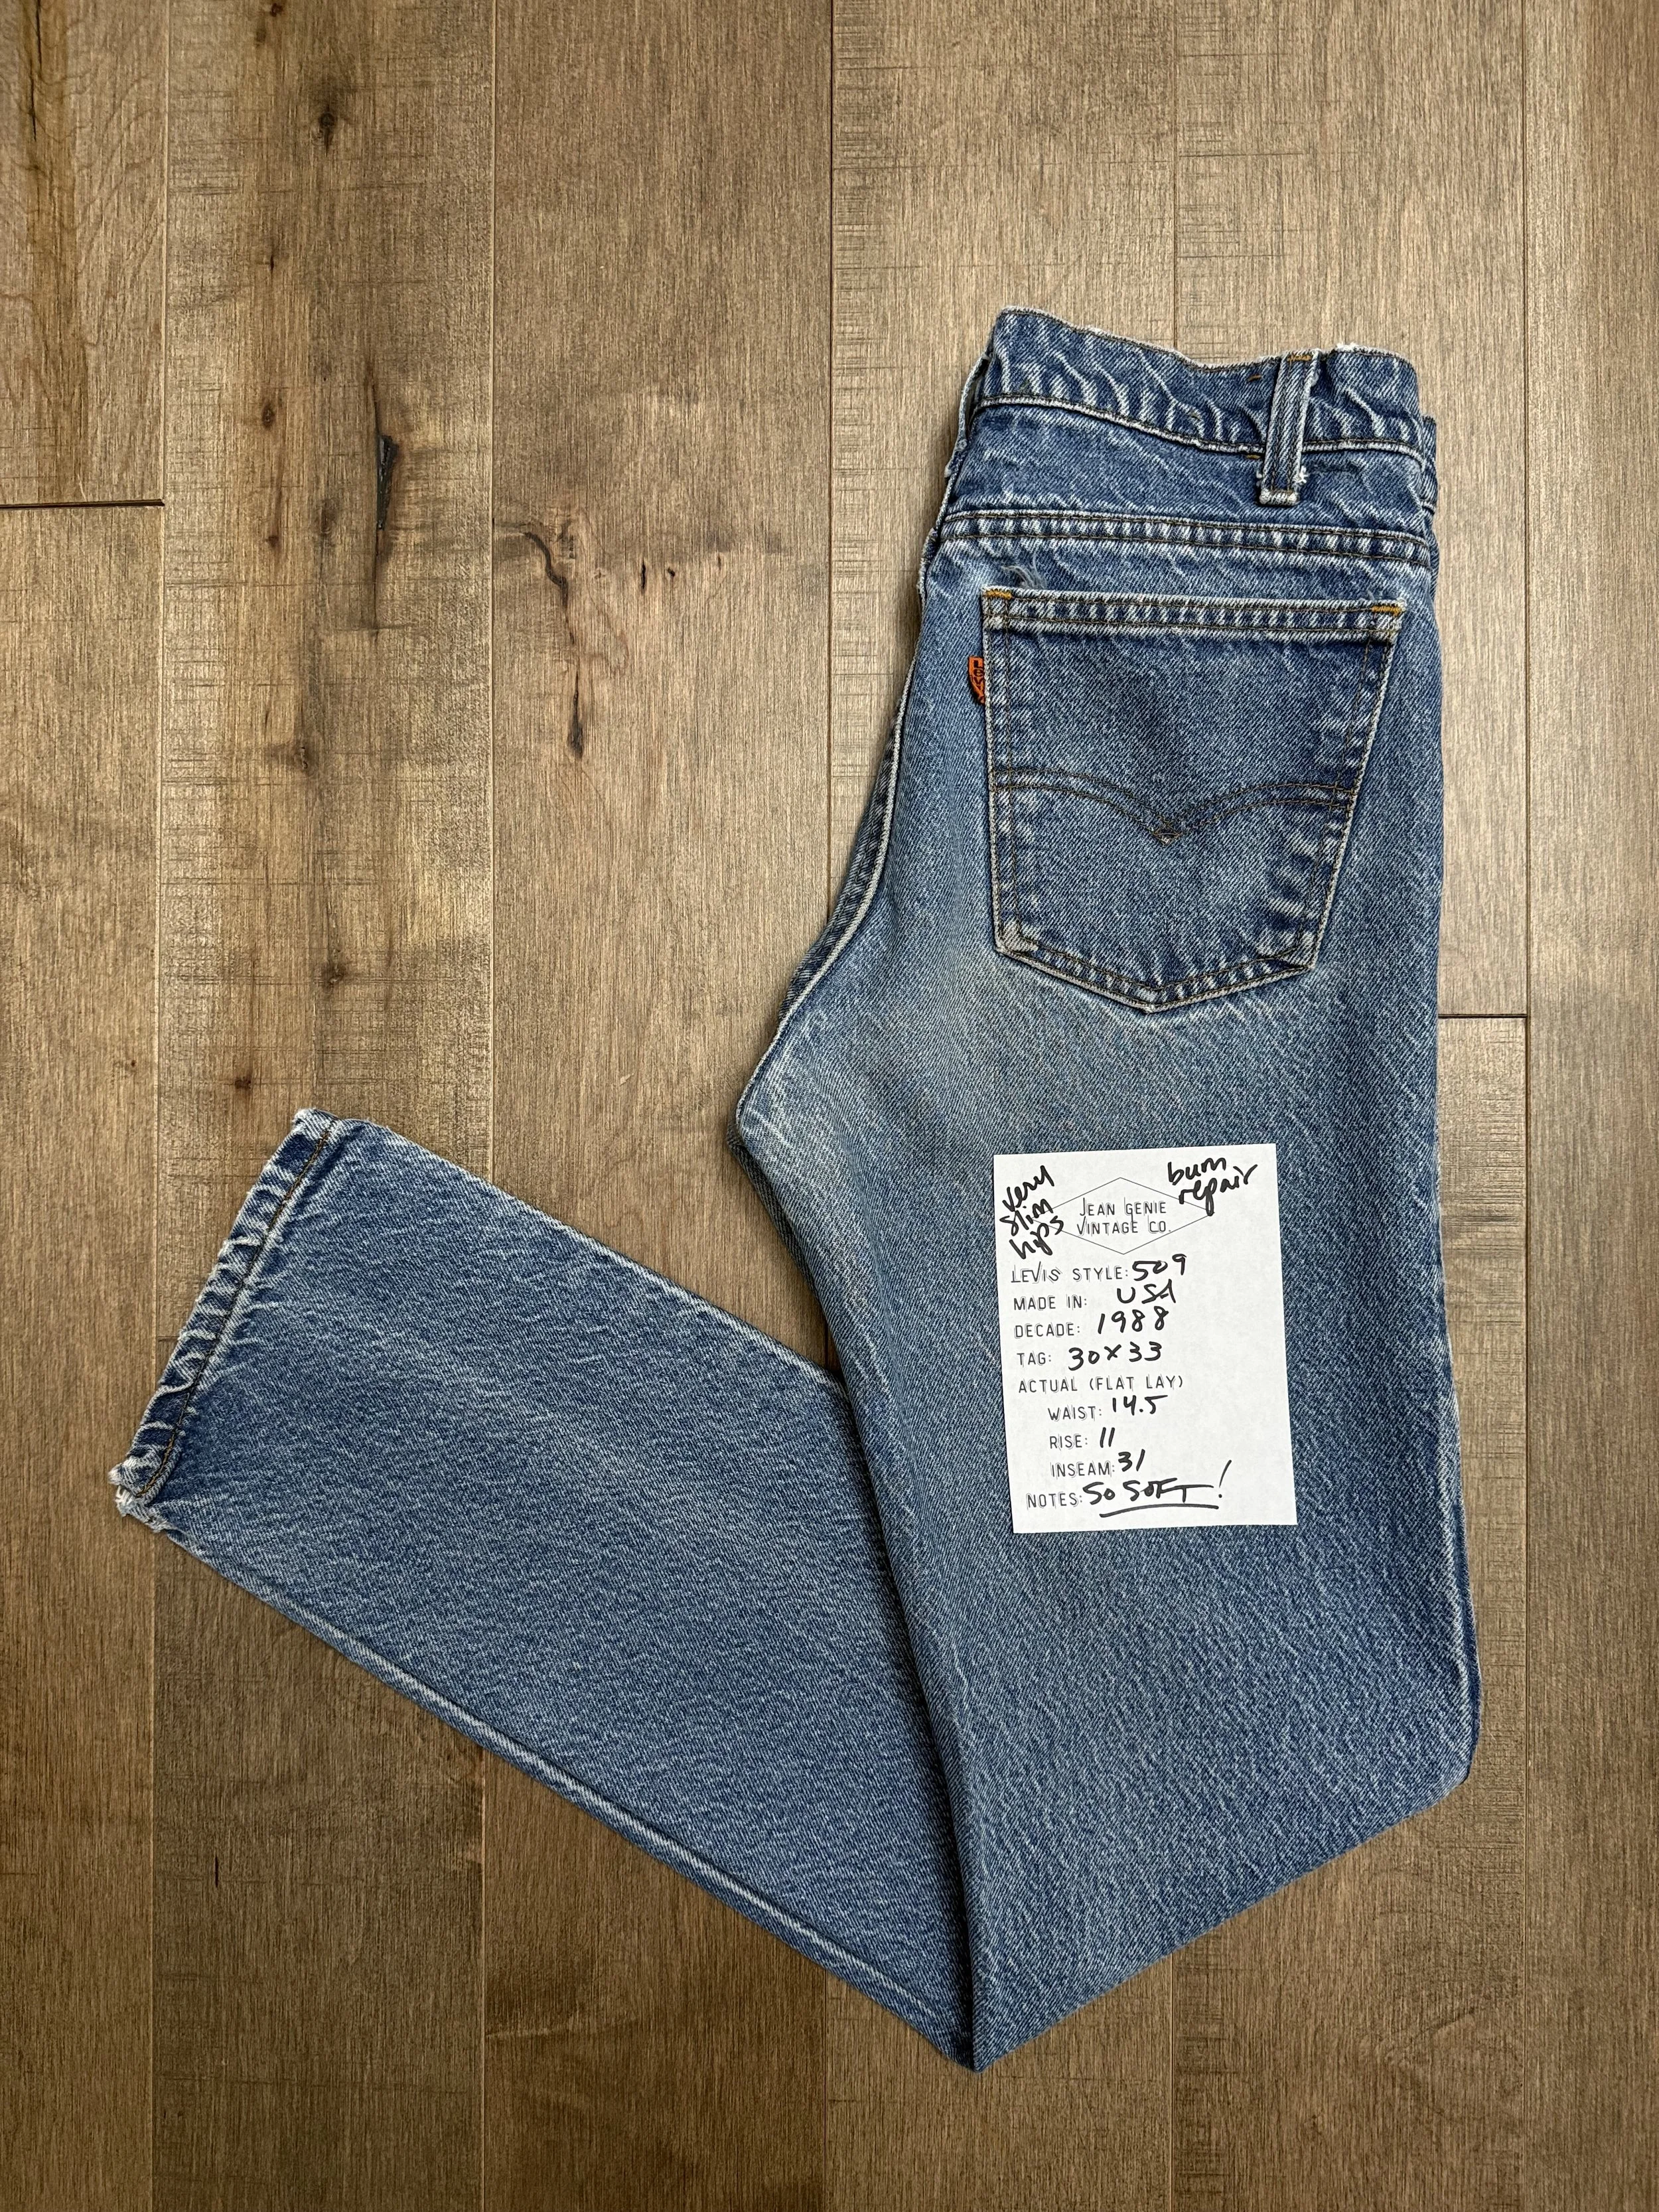 LEVI
very
slim
hips
bum
repair
JEAN GENIE
VINTAGE CO.
LEVIS STYLE: 509
MADE IN: USA
DECADE: 1988
TAG: 30x33
ACTUAL (FLAT LAY)
WAIST: 14.5
RISE: 11
INSEAM: 31
NOTES: SO SOFT!